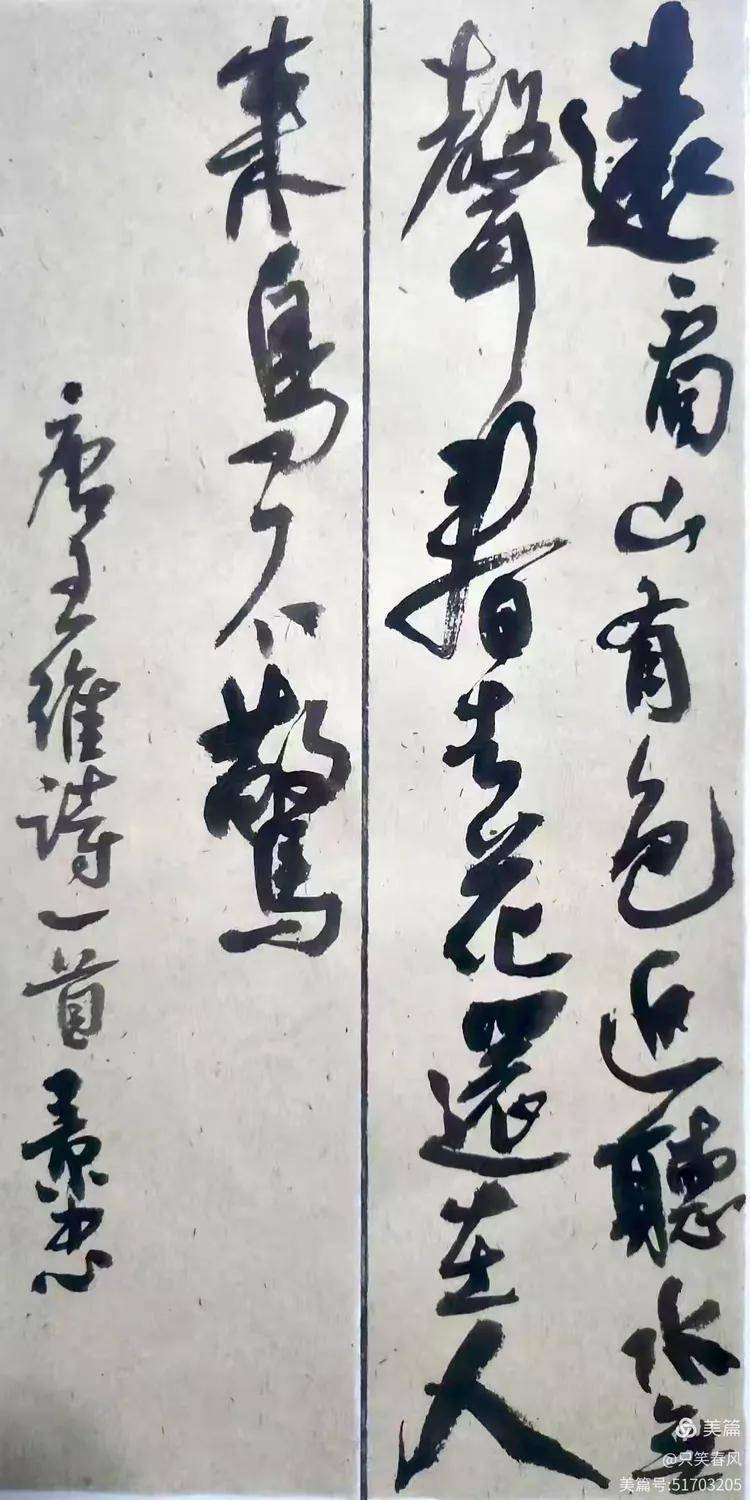 遠看山有色近聽水無
聲春去花還在人
来鳥不驚
唐王維詩一首景忠
美篇
@只笑春风
美篇号:51703205